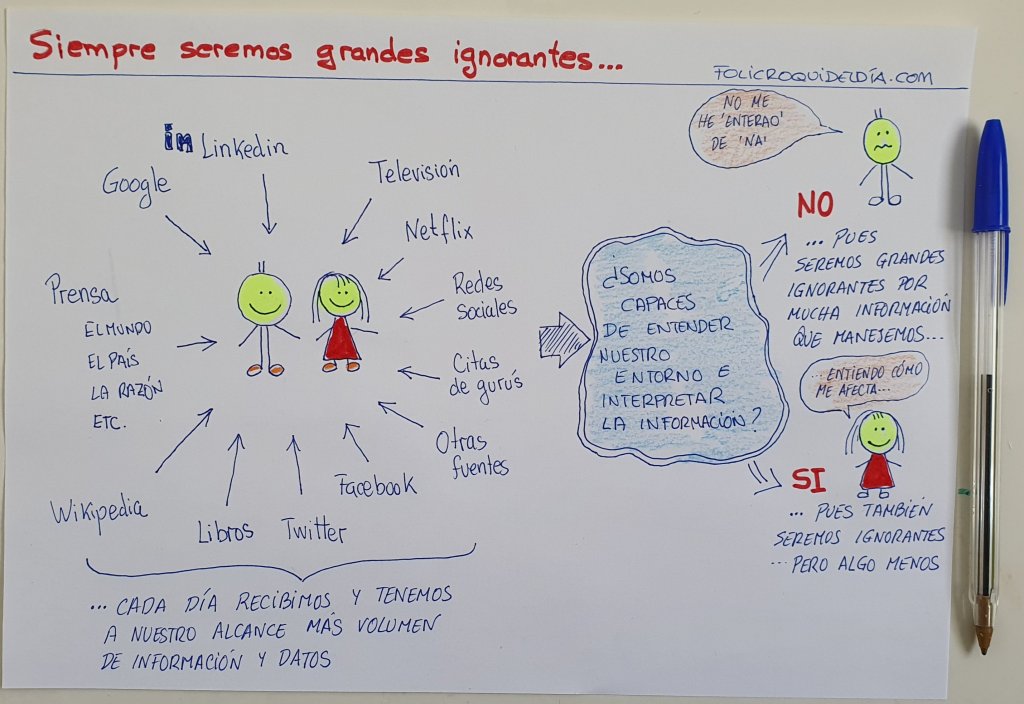 Siempre seremos grandes ignorantes...
FOLICROQUIDELDÍA.COM
in Linkedin
Google
Televisión
Netflix
Prensa
EL MUNDO
EL PAÍS
LA RAZÓN
ETC.
Redes
Sociales
Citas
de gurús
Otras
fuentes
Facebook
Wikipedia
Libros
Twitter
... CADA DÍA RECIBIMOS Y TENEMOS
A NUESTRO ALCANCE MÁS VOLUMEN
DE INFORMACIÓN Y DATOS
¿SOMOS
CAPACES
DE ENTENDER
NUESTRO
ENTORNO E
INTERPRETAR
LA INFORMACIÓN?
NO ME
HE 'ENTERAO'
DE 'NA'
NO
... PUES
SEREMOS GRANDES
IGNORANTES POR
MUCHA INFORMACIÓN
QUE MANEJEMOS...
...ENTIENDO CÓMO
ME AFECTA...
SI
... PUES TAMBIÉN
SEREMOS IGNORANTES
... PERO ALGO MENOS